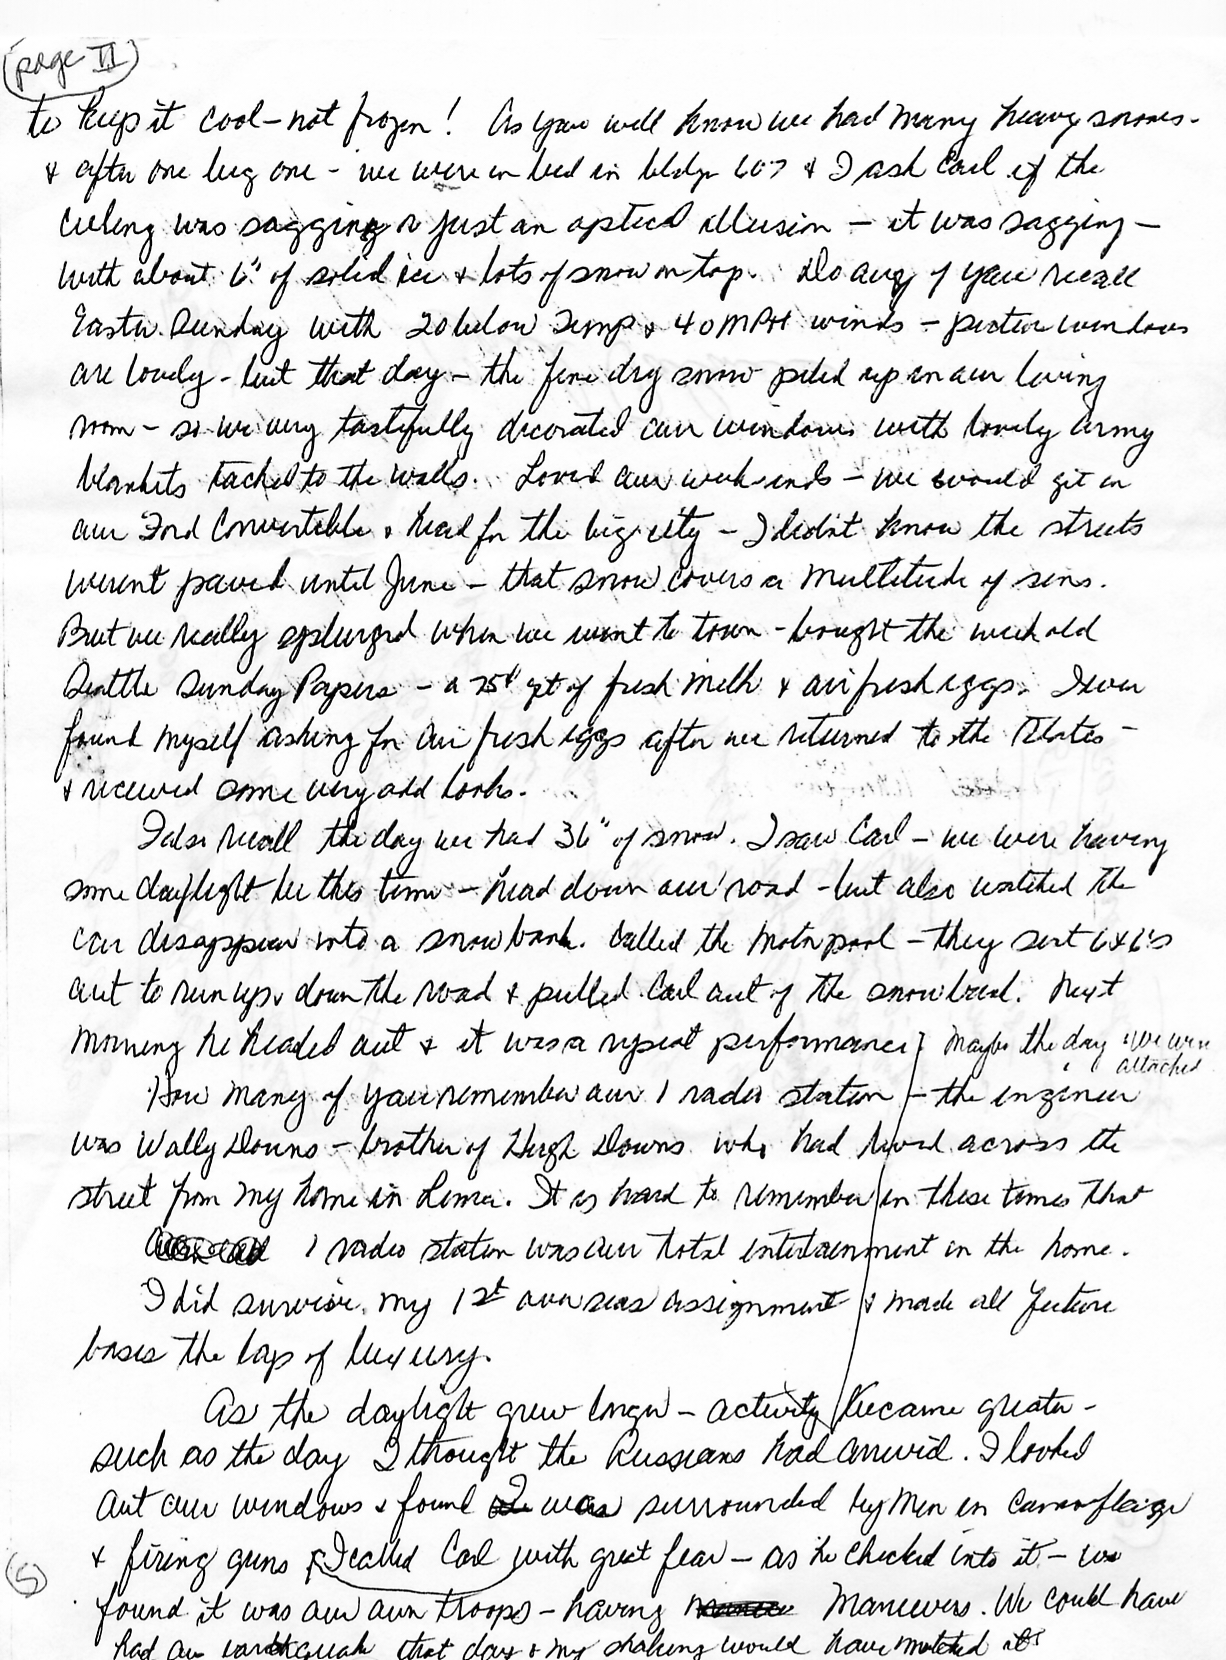 (page II)
to keep it cool - not frozen! As you well know we had many heavy snows -
& after one big one - we were in bed in bldg 607 & I ask Carl if the
cieling was sagging or just an optical illusion - it was sagging -
with about 6" of solid ice & lots of snow on top. Do any of you recall
Easter Sunday with 20 below temp & 40 MPH winds - picture windows
are lovely - but that day - the fine dry snow piled up in our living
room - so we very tastefully decorated our windows with lovely army
blankets tacked to the walls. Loved our week-ends - we would get in
our Ford Convertible & head for the big city - I didn't know the streets
weren't paved until June - that snow covers a multitude of sins.
But we really splurged when we went to town - bought the week old
Seattle Sunday Papers - a 75¢ qt of fresh milk & air fresh eggs. I even
found myself asking for air fresh eggs after we returned to the States -
& received some very odd looks.
I also recall the day we had 36" of snow. I saw Carl - we were having
some daylight by this time - head down our road - but also watched the
car disappear into a snow bank. Called the Motor pool - they sent 6x6's
out to run up & down the road & pulled Carl out of the snow bed. Next
morning he headed out & it was a repeat performance} Maybe the day we were
attached
How many of you remember our 1 radio station - the engineer
was Wally Downs - brother of Hugh Downs who had lived across the
street from my home in Lima. It is hard to remember in these times that
1 radio station was our total entertainment in the home.
I did survive my 1st overseas assignment & made all future
bases the lap of luxury.
As the daylight grew longer - activity became greater -
such as the day I thought the Russians had arrived. I looked
out our windows & found I was surrounded by men in camoflage
& firing guns I called Carl with great fear - as he checked into it - we
found it was our own troops - having Maneuvers. We could have
had an earthquake that day & my shaking would have matched it!
(5)